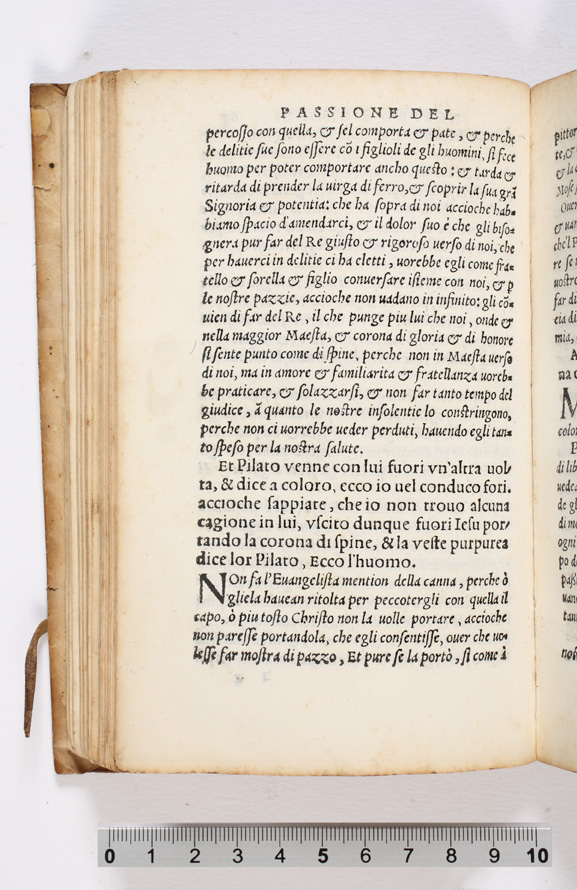 PASSIONE DEL
percosso con quella, & sel comporta & pate, & perche
le delitie sue sono essere cō i figlioli de gli huomini, si fece
huomo per poter comportare ancho questo: & tarda &
ritarda di prender la uirga di ferro, & scoprir la sua grā
Signoria & potentia: che ha sopra di noi accioche hab-
biamo spacio d'amendarci, & il dolor suo è che gli biso-
gnera pur far del Re giusto & rigoroso uerso di noi, che
per hauerci in delitie ci ha eletti, uorebbe egli come fra-
tello & sorella & figlio conuersare isieme con noi, & p
le nostre pazzie, accioche non uadano in infinito: gli cō-
uien di far del Re, il che punge piu lui che noi, onde &
nella maggior Maesta, & corona di gloria & di honore
si sente punto come di spine, perche non in Maesta uerso
di noi, ma in amore & familiarita & fratellanza uoreb-
be praticare, & solazzarsi, & non far tanto tempo del
giudice, ā quanto le nostre insolentie lo constringono,
perche non ci uorrebbe ueder perduti, hauendo egli tan-
to speso per la nostra salute.
Et Pilato venne con lui fuori vn'altra uol-
ta, & dice a coloro, ecco io uel conduco fori.
accioche sappiate, che io non trouo alcuna
cagione in lui, vscito dunque fuori Iesu por-
tando la corona di spine, & la veste purpurea
dice lor Pilato, Ecco l'huomo.
NOn fa l'Euangelista mention della canna, perche ò
gliela hauean ritolta per peccotergli con quella il
capo, ò piu tosto Christo non la uolle portare, accioche
non paresse portandola, che egli consentisse, ouer che uo-
lesse far mostra di pazzo, Et pure se la portò, si come à
pittor
te, &
& la
Mose
& uar
che'l P
re se
nostre
far di
cia di
mia,
A
na
M
color
P
di lib
uede
de gl
di me
ogni
po d
pass
uan
tan
nost
0 1 2 3 4 5 6 7 8 9 10